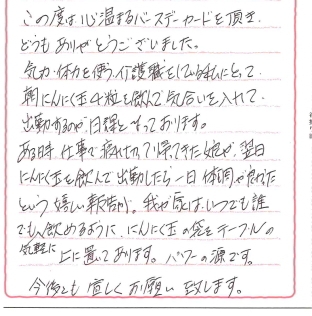 この度は心温まるバースデーカードを頂き、
どうもありがとうございました。
気力・体力を使う介護職をしている私にとって
朝にんにく玉4粒を飲んで気合いを入れて
出勤するのが日課となっております。
ある時仕事で疲れ切って帰ってきた娘が、翌日
にんにく玉を飲んで出勤したら一日体調が良かった
という嬉しい報告が。我が家はいつでも誰
でも飲めるように、にんにく玉の袋をテーブルの
気軽に
上に置いてあります。パワーの源です。
今後とも宜しくお願い致します。